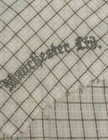 Manchester Ltd.